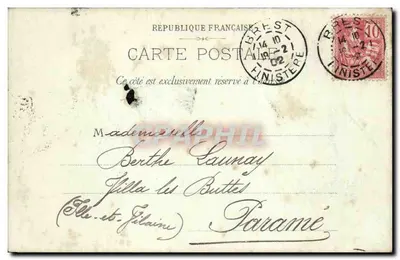 RÉPUBLIQUE FRANÇAISE
CARTE POSTALE
Ce côté est exclusivement réservé à l'
BREST
14 10
19 -2
02
FINISTERE
BREST
10
-2
FINISTERE
10
Mademoiselle
Berthe Launay
Villa les Buttes
(Ille-et-Vilaine) Paramé